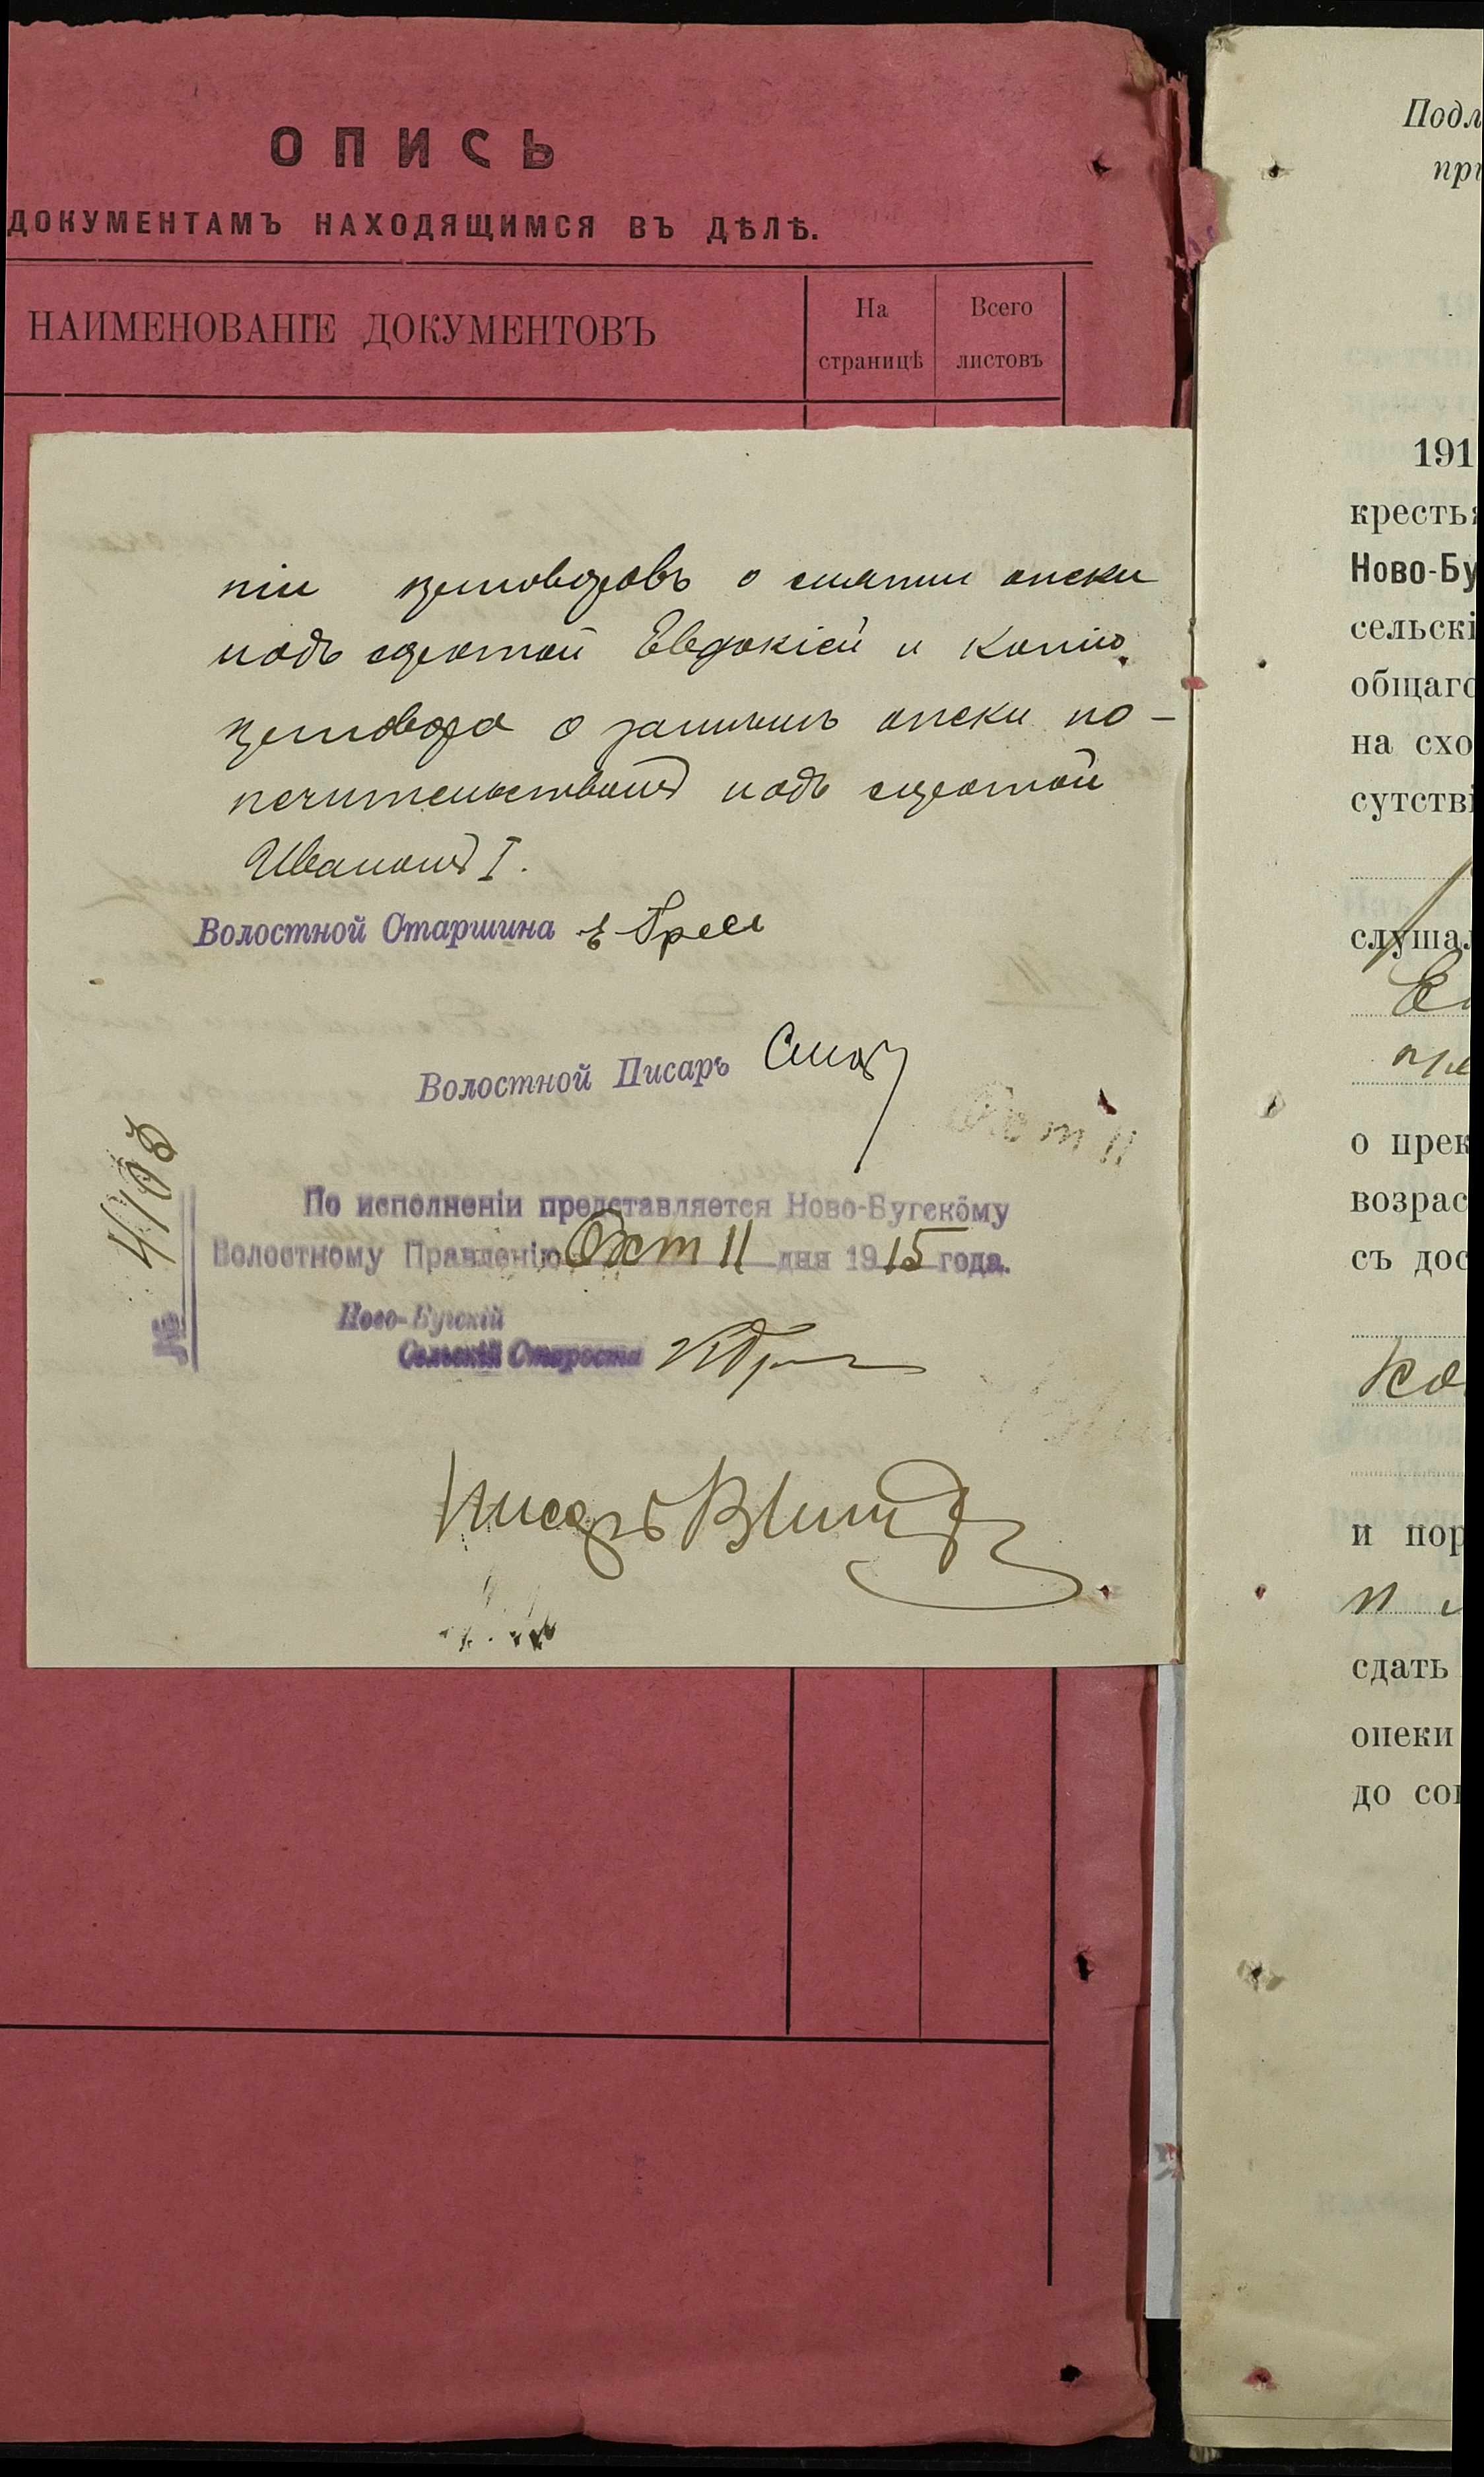 ОПИСЬ
ДОКУМЕНТАМЪ НАХОДЯЩИМСЯ ВЪ ДѢЛѢ.
НАИМЕНОВАНІЕ ДОКУМЕНТОВЪ
На страницѣ
Всего листовъ
піи приговоровъ о снятіи опеки
надъ сиротой Евдокіей и копію
приговора о замѣнѣ опеки по-
печительствомъ надъ сиротой
Иваномъ I.
Волостной Старшина
Волостной Писарь
По исполненіи представляется Ново-Бугскому
Волостному Правленію Окт 11 дня 1915 года.
№ 4103
Ново-Бугскій
Сельскій Староста
Писарь
Подл
при
191
кресть
Ново-Бу
сельскі
общаго
на схо
сутстві
слушал
о прек
возрас
съ дос
и пор
сдать
опеки
до со